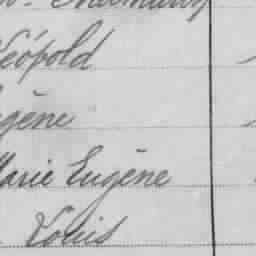 Léopold
Eugène
Marie Eugène
Louis